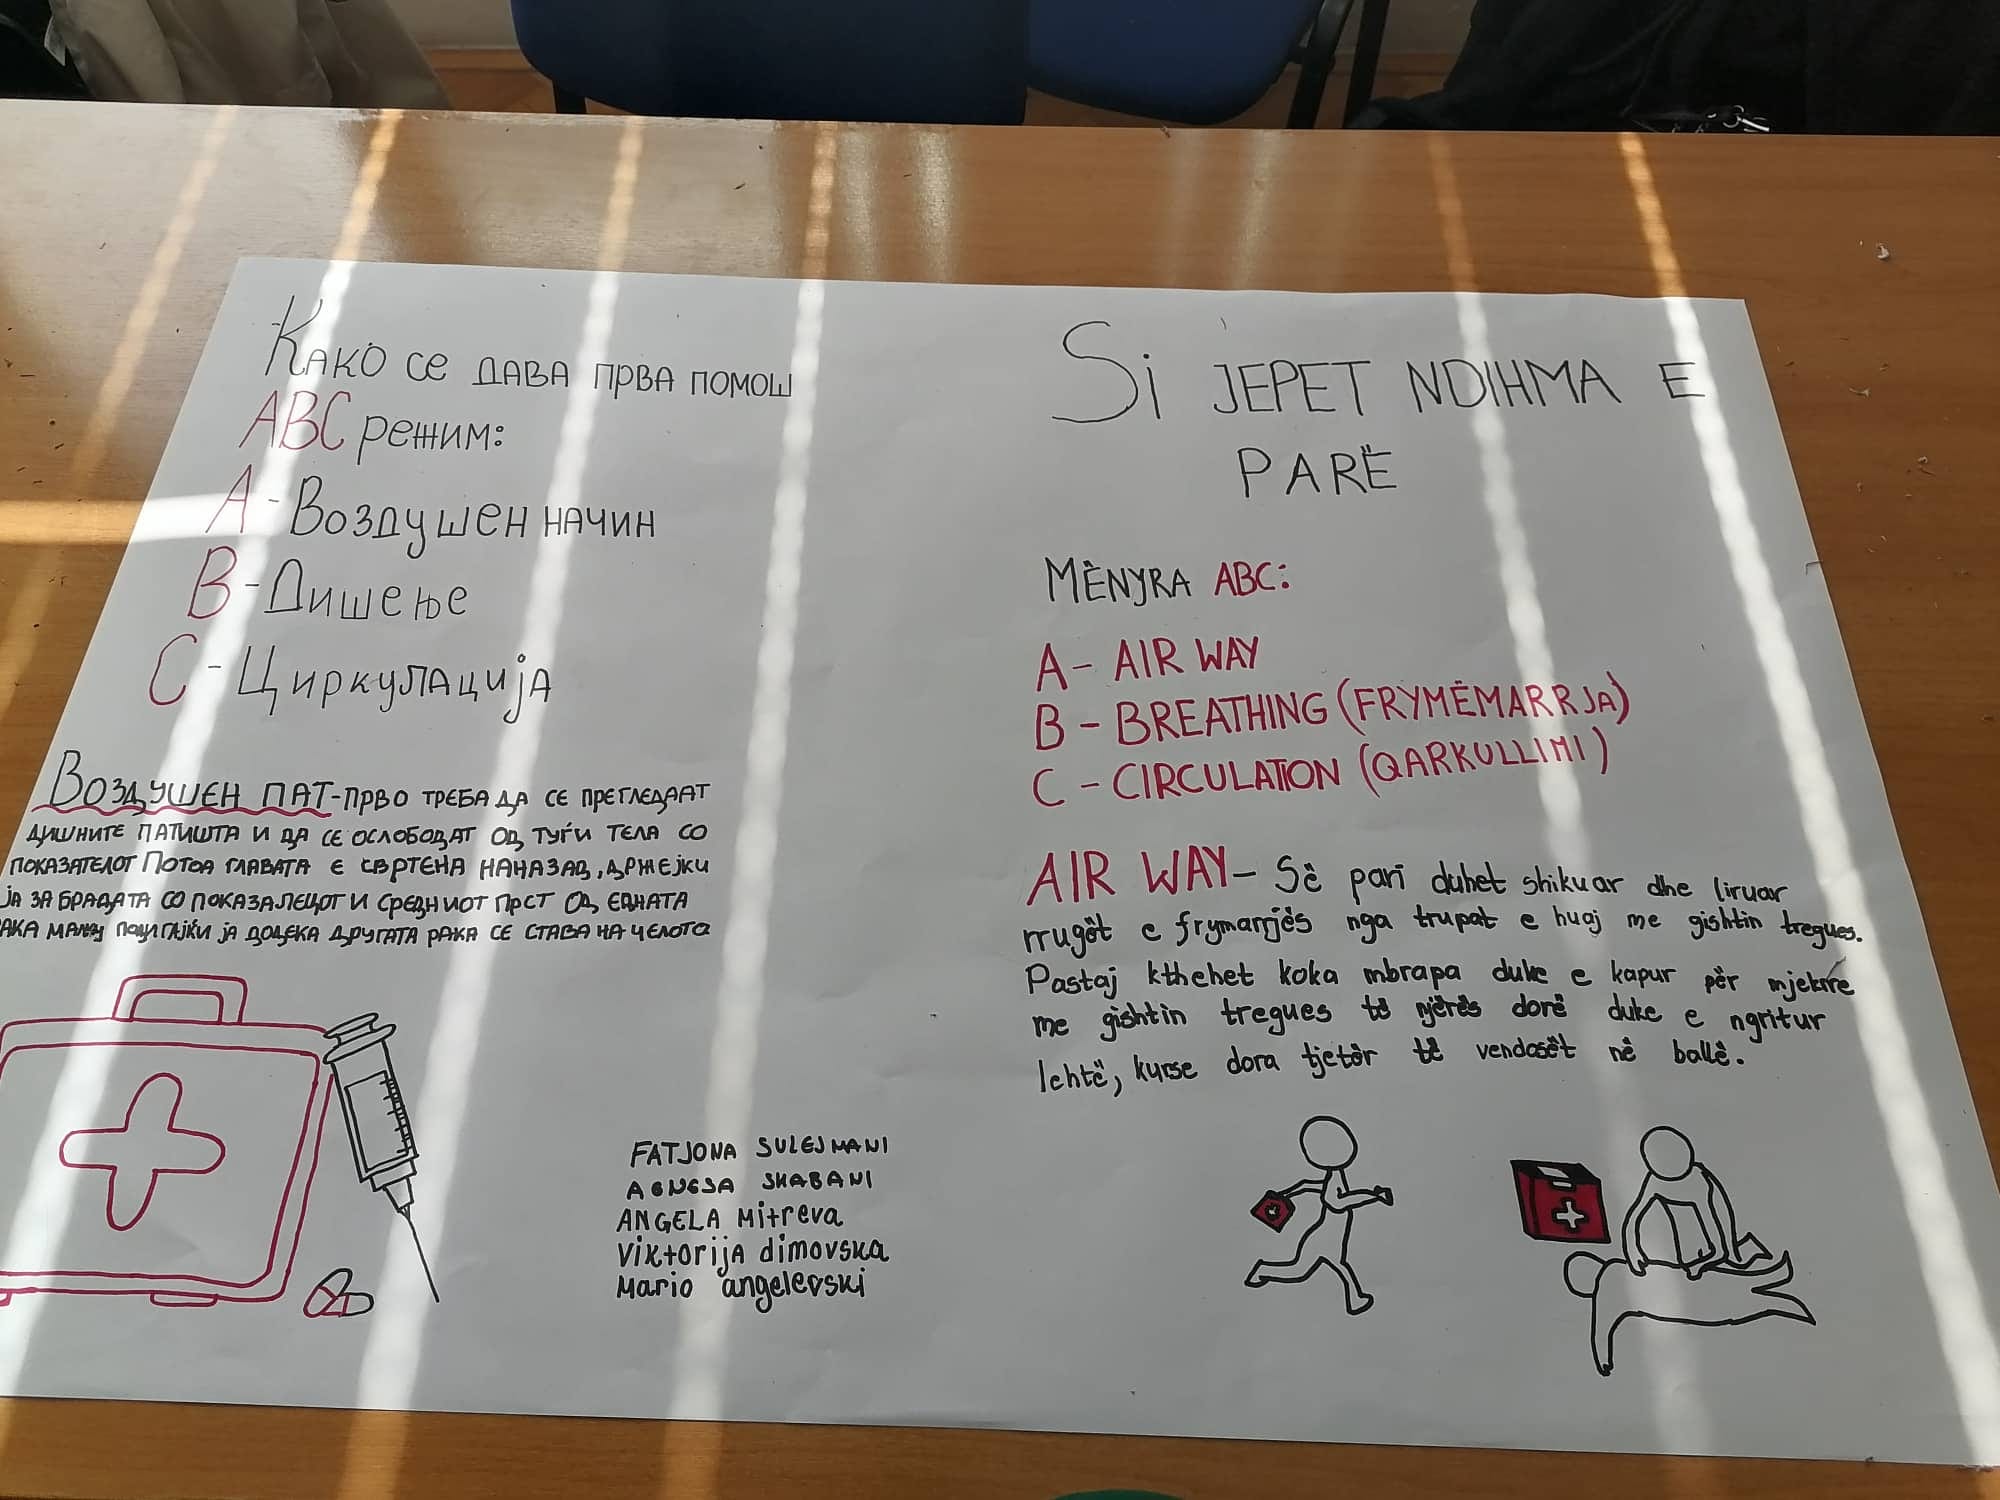 Како се дава прва помош
ABC режим:
A - Воздушен начин
B - Дишење
C - Циркулација
Воздушен пат - прво треба да се прегледаат
дишните патишта и да се ослободат од туѓи тела со
показателот Потоа главата е свртена наназад, држејки
ја за брадата со показалецот и средниот прст од едната
рака малку подигајќи ја додека другата рака се става на челото
FATJONA SULEJMANI
AGNESA SHABANI
ANGELA Mitreva
Viktorija dimovska
Mario angelevski
Si JEPET NDIHMA E
PARË
MËNYRA ABC:
A - AIR WAY
B - BREATHING (FRYMËMARRJA)
C - CIRCULATION (QARKULLIMI)
AIR WAY - Së pari duhet shikuar dhe liruar
rrugët e frymarrjës nga trupat e huaj me gishtin tregues.
Pastaj kthehet koka mbrapa duke e kapur për mjekrre
me gishtin tregues të njërës dorë duke e ngritur
lehtë, kurse dora tjetër të vendosët në ballë.